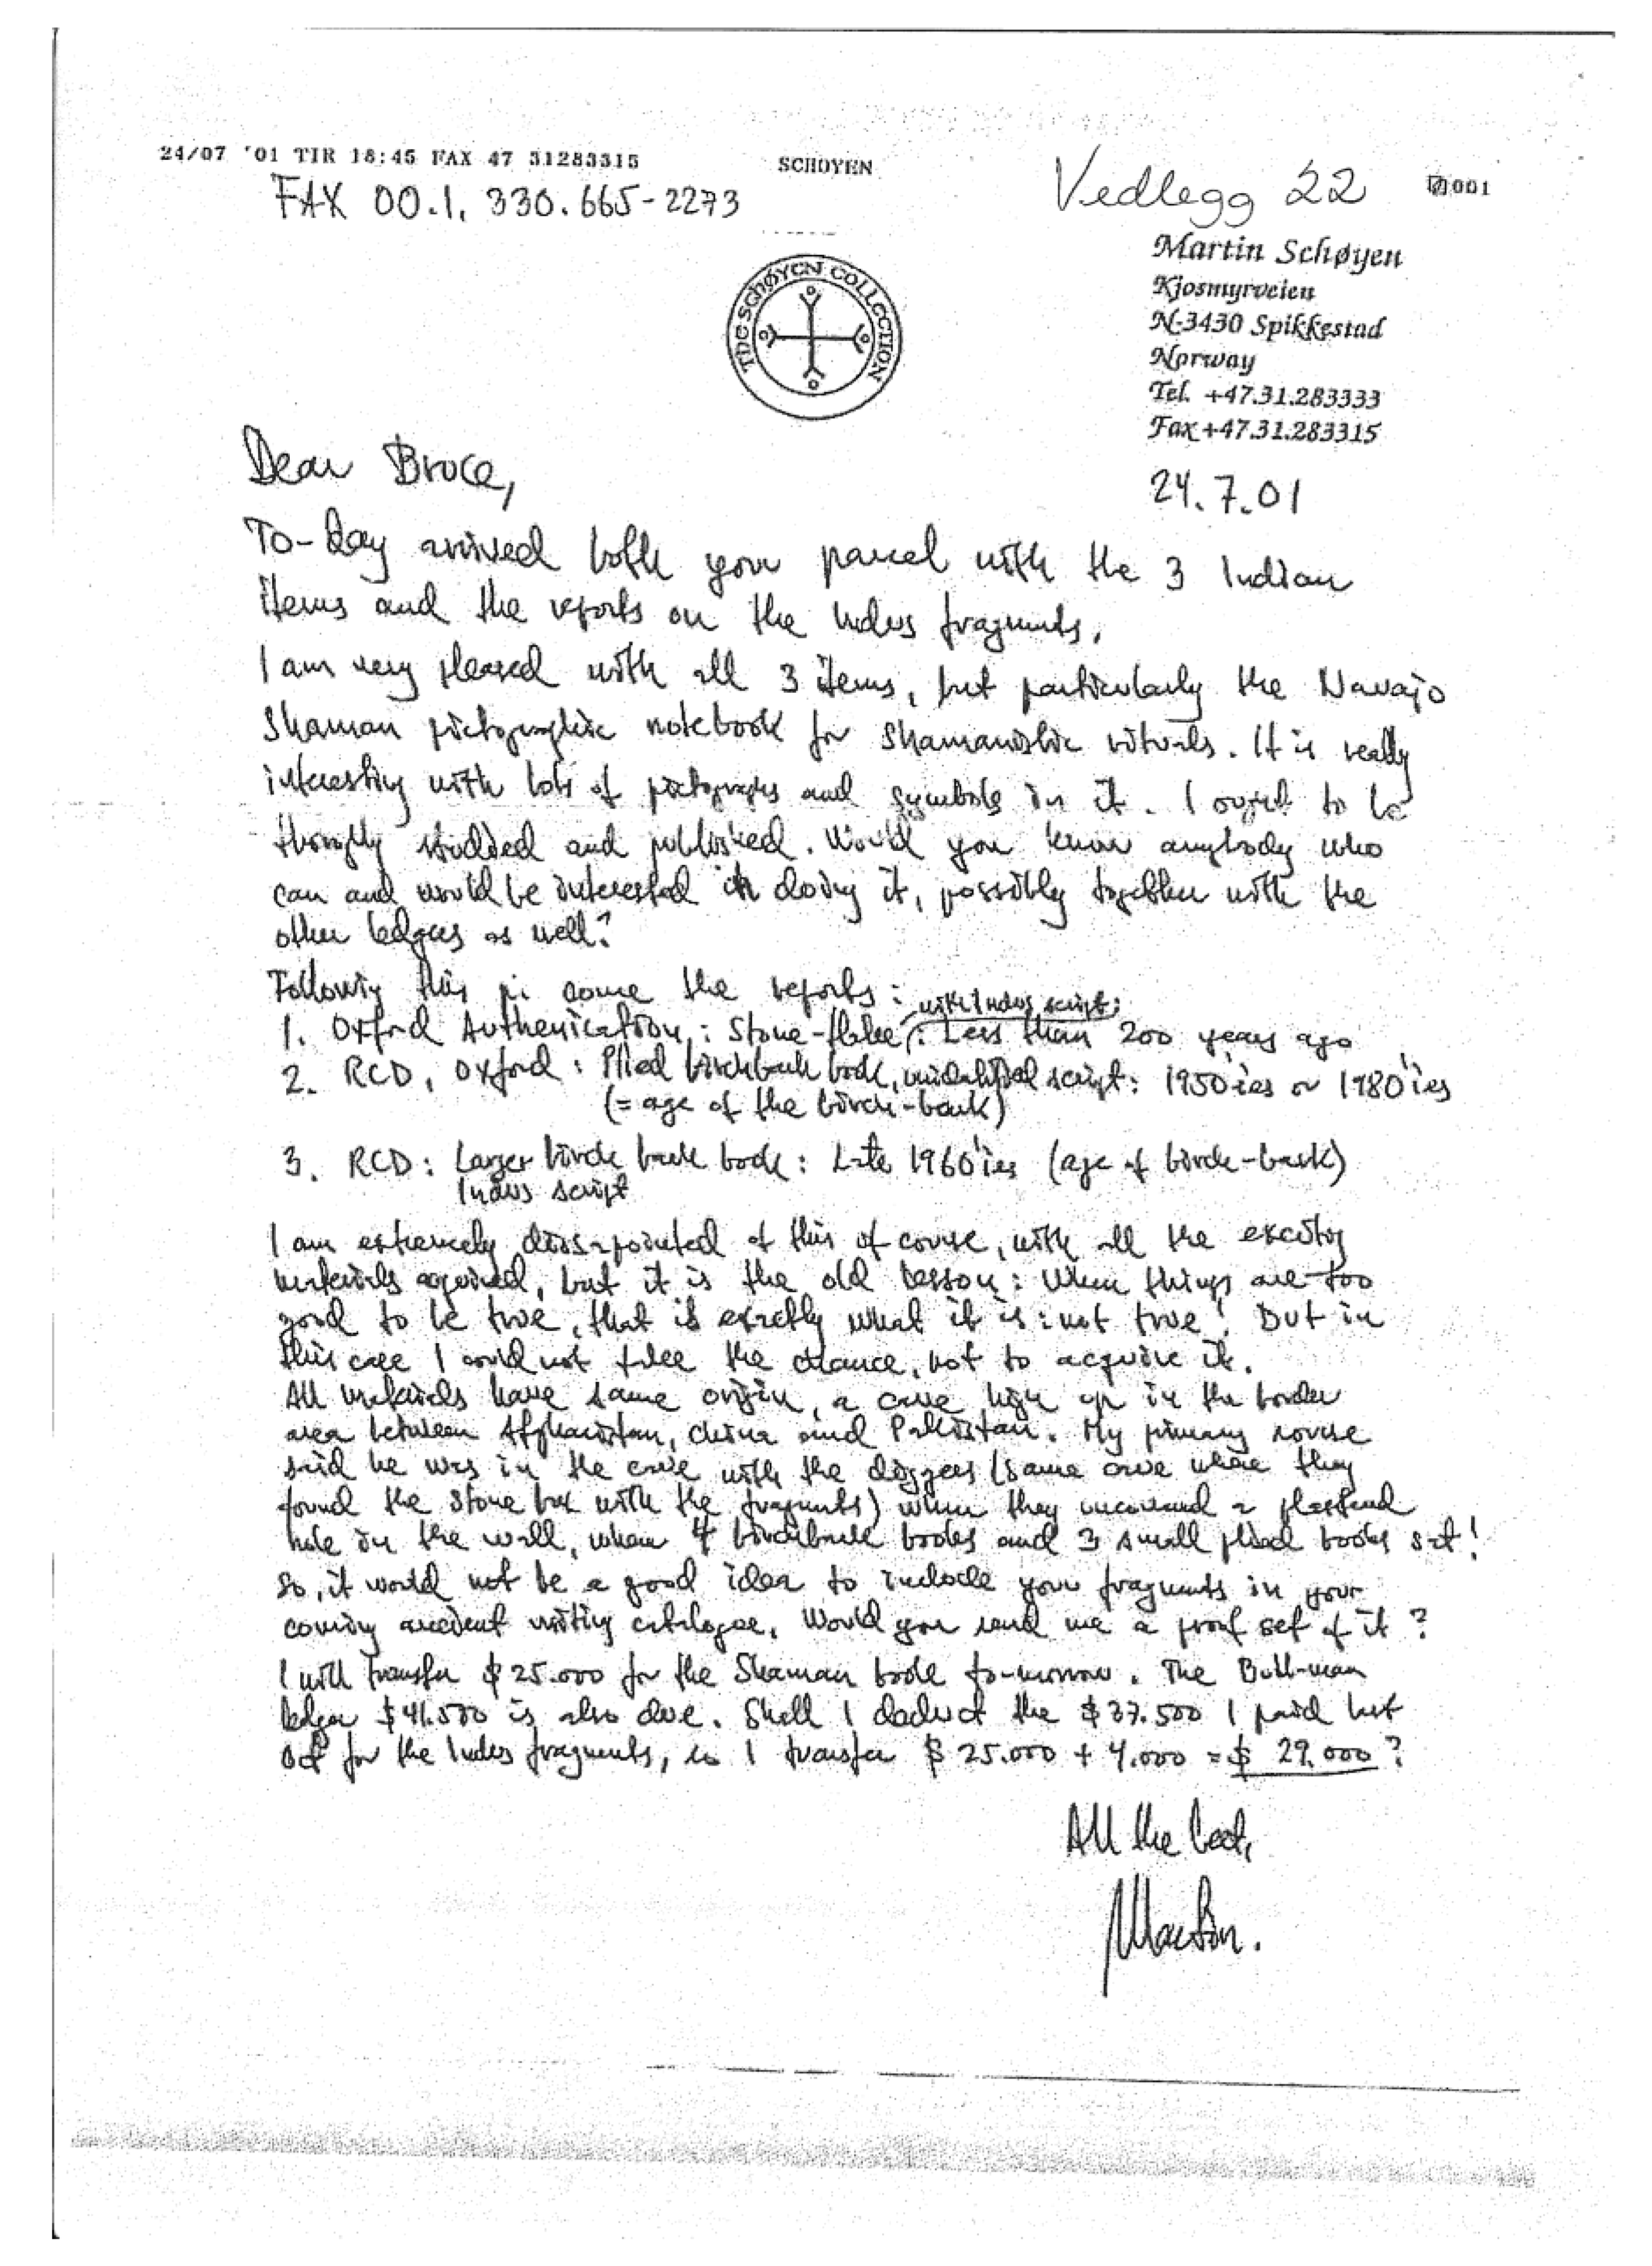 24/07 '01 TIR 18:45 FAX 47 31283315 SCHOYEN 001
FAX 00.1. 330.665-2273
Vedlegg 22
THE SCHØYEN COLLECTION
Martin Schøyen
Kjosmyrveien
N-3430 Spikkestad
Norway
Tel. +47.31.283333
Fax +47.31.283315
24.7.01
Dear Bruce,
To-day arrived both your parcel with the 3 Indian
items and the reports on the Indus fragments.
I am very pleased with all 3 items, but particularly the Navajo
Shaman pictographic notebook for shamanistic rituals. It is really
interesting with lots of pictographs and symbols in it. I ought to be
studied and published. Would you know anybody who
can and would be interested in doing it, possibly together with the
other ledgers as well?
Following this come the reports:
with Indus script:
1. Oxford Authenication,: Stone-flake: Less than 200 years ago
2. RCD, Oxford: Plied birchbark book, unidentified script: 1950'ies or 1980'ies
(= age of the birch-bark)
3. RCD: Larger birch bark book: Late 1960'ies (age of birch-bark)
Indus script
I am extremely of this of course, with all the exciting
materials acquired, but it is the old lesson: When things are too
good to be true, that is exactly what it is: not true! But in
this case I could not take the chance, not to acquire it.
All materials have same origin, a cave high up in the border
area between Afghanistan, China and Pakistan. My primary source
said he was in the cave with the diggers (same cave where they
found the stone box with the fragments) when they uncovered a
hole in the wall, where 4 birchbark books and 3 small plied books sat!
So, it would not be a good idea to include your fragments in your
coming ancient writing catalogue. Would you send me a proof set of it?
I will transfer $ 25.000 for the Shaman book to-morrow. The Bull-man
ledger $ 41.500 is also due. Shall I deduct the $ 37.500 I paid last
Oct for the Indus fragments, so I transfer $ 25.000 + 4.000 = $ 29.000?
All the best,
Martin.